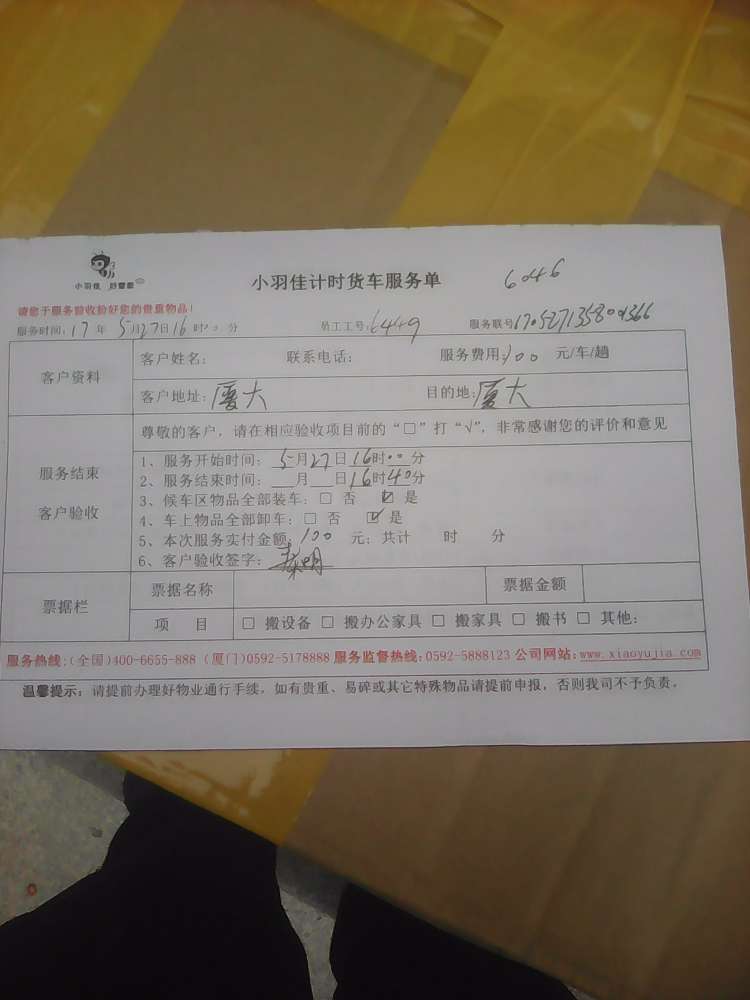 小羽佳 好管家
小羽佳计时货车服务单 6046
请您于服务验收扮好您的贵重物品!
服务时间:17年5月27日16时00分 员工工号:6449 服务联号
客户资料
客户姓名: 联系电话: 服务费用:100 元/车/趟
客户地址:厦大 目的地:厦大
服务结束
客户验收
尊敬的客户,请在相应验收项目前的“□”打“√”,非常感谢您的评价和意见
1、服务开始时间:5月27日16时00分
2、服务结束时间:__月__日16时40分
3、候车区物品全部装车:□ 否 ☑ 是
4、车上物品全部卸车:□ 否 ☑ 是
5、本次服务实付金额:100 元;共计 时 分
6、客户验收签字:
票据栏
票据名称 票据金额
项 目 □ 搬设备 □ 搬办公家具 □ 搬家具 □ 搬书 □ 其他:
服务热线:(全国)400-6655-888 (厦门)0592-5178888 服务监督热线:0592-5888123 公司网站:www.xiaoyujia.com
温馨提示:请提前办理好物业通行手续,如有贵重、易碎或其它特殊物品请提前申报,否则我司不予负责。